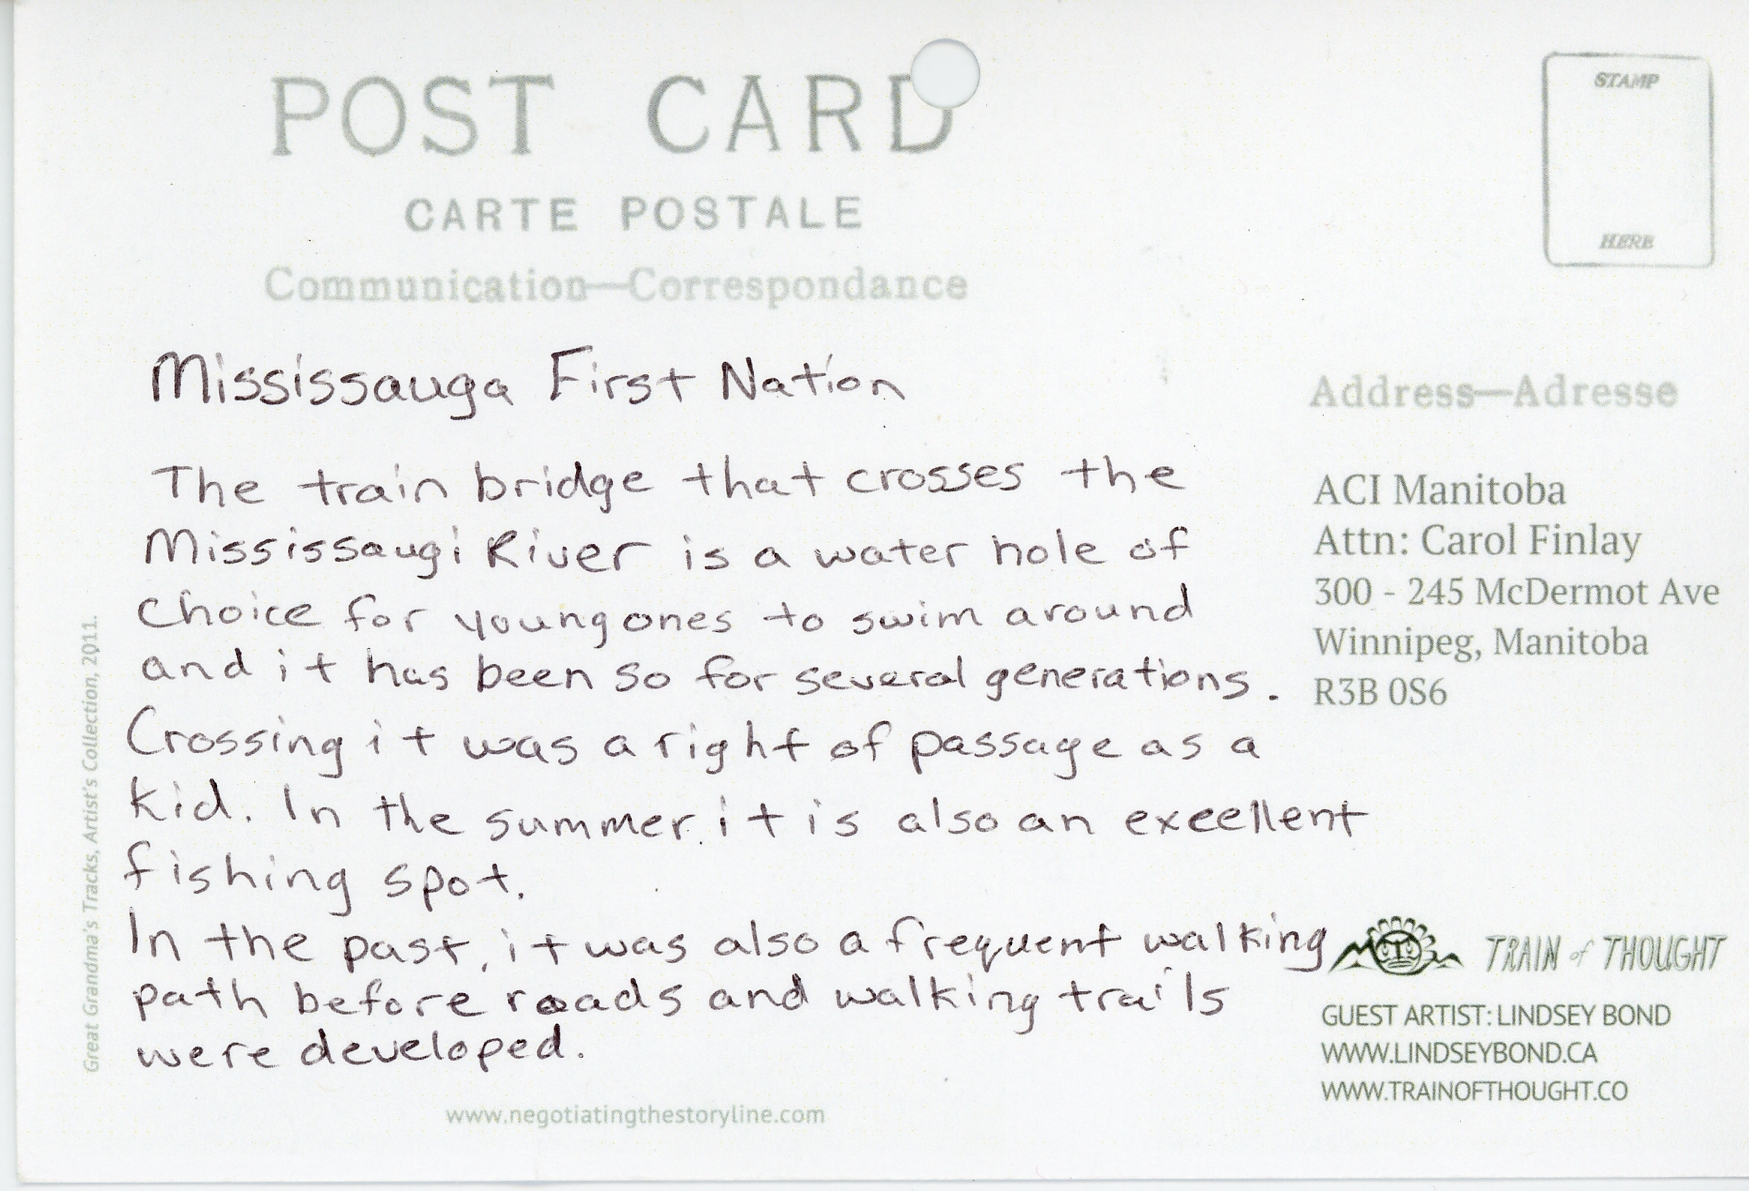 POST CARD
CARTE POSTALE
Communication—Correspondance
STAMP
HERE
Mississauga First Nation
The train bridge that crosses the
Mississaugi River is a water hole of
choice for young ones to swim around
and it has been so for several generations.
Crossing it was a right of passage as a
kid. In the summer it is also an excellent
fishing spot.
In the past, it was also a frequent walking
path before roads and walking trails
were developed.
Address—Adresse
ACI Manitoba
Attn: Carol Finlay
300 - 245 McDermot Ave
Winnipeg, Manitoba
R3B 0S6
TRAIN of THOUGHT
GUEST ARTIST: LINDSEY BOND
WWW.LINDSEYBOND.CA
WWW.TRAINOFTHOUGHT.CO
Great Grandma's Tracks, Artist's Collection, 2011.
www.negotiatingthestoryline.com